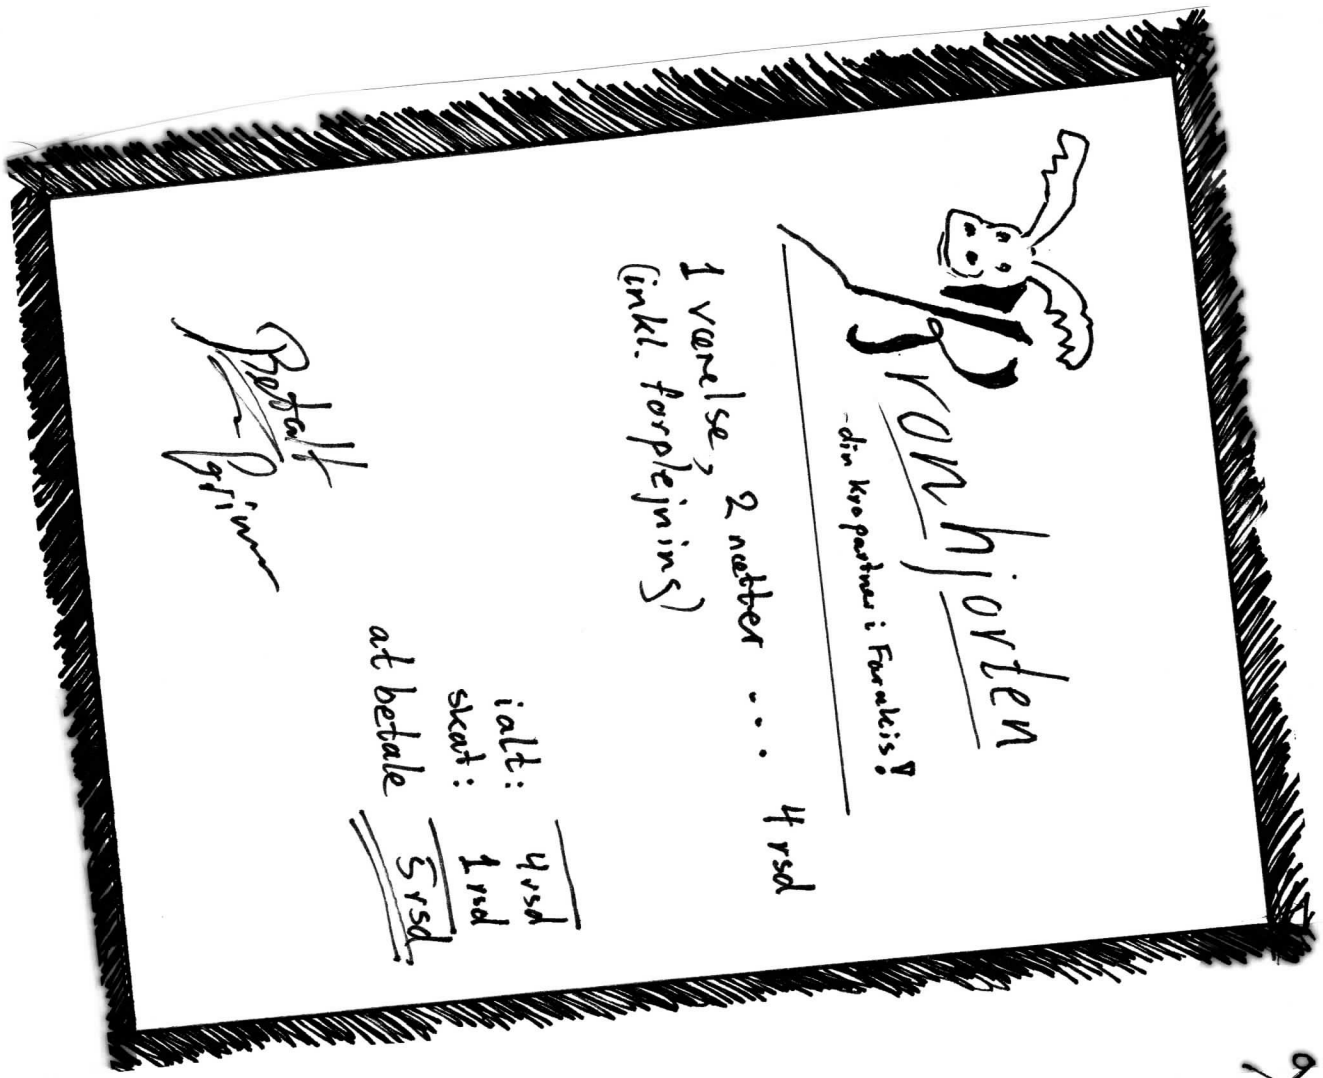 Kronhjorten
-din kropartner i Farakis!
1 værelse, 2 nætter ... 4 rsd
(inkl. forplejning)
ialt: 4 rsd
skat: 1 rsd
at betale 5 rsd
Betalt
Grimm